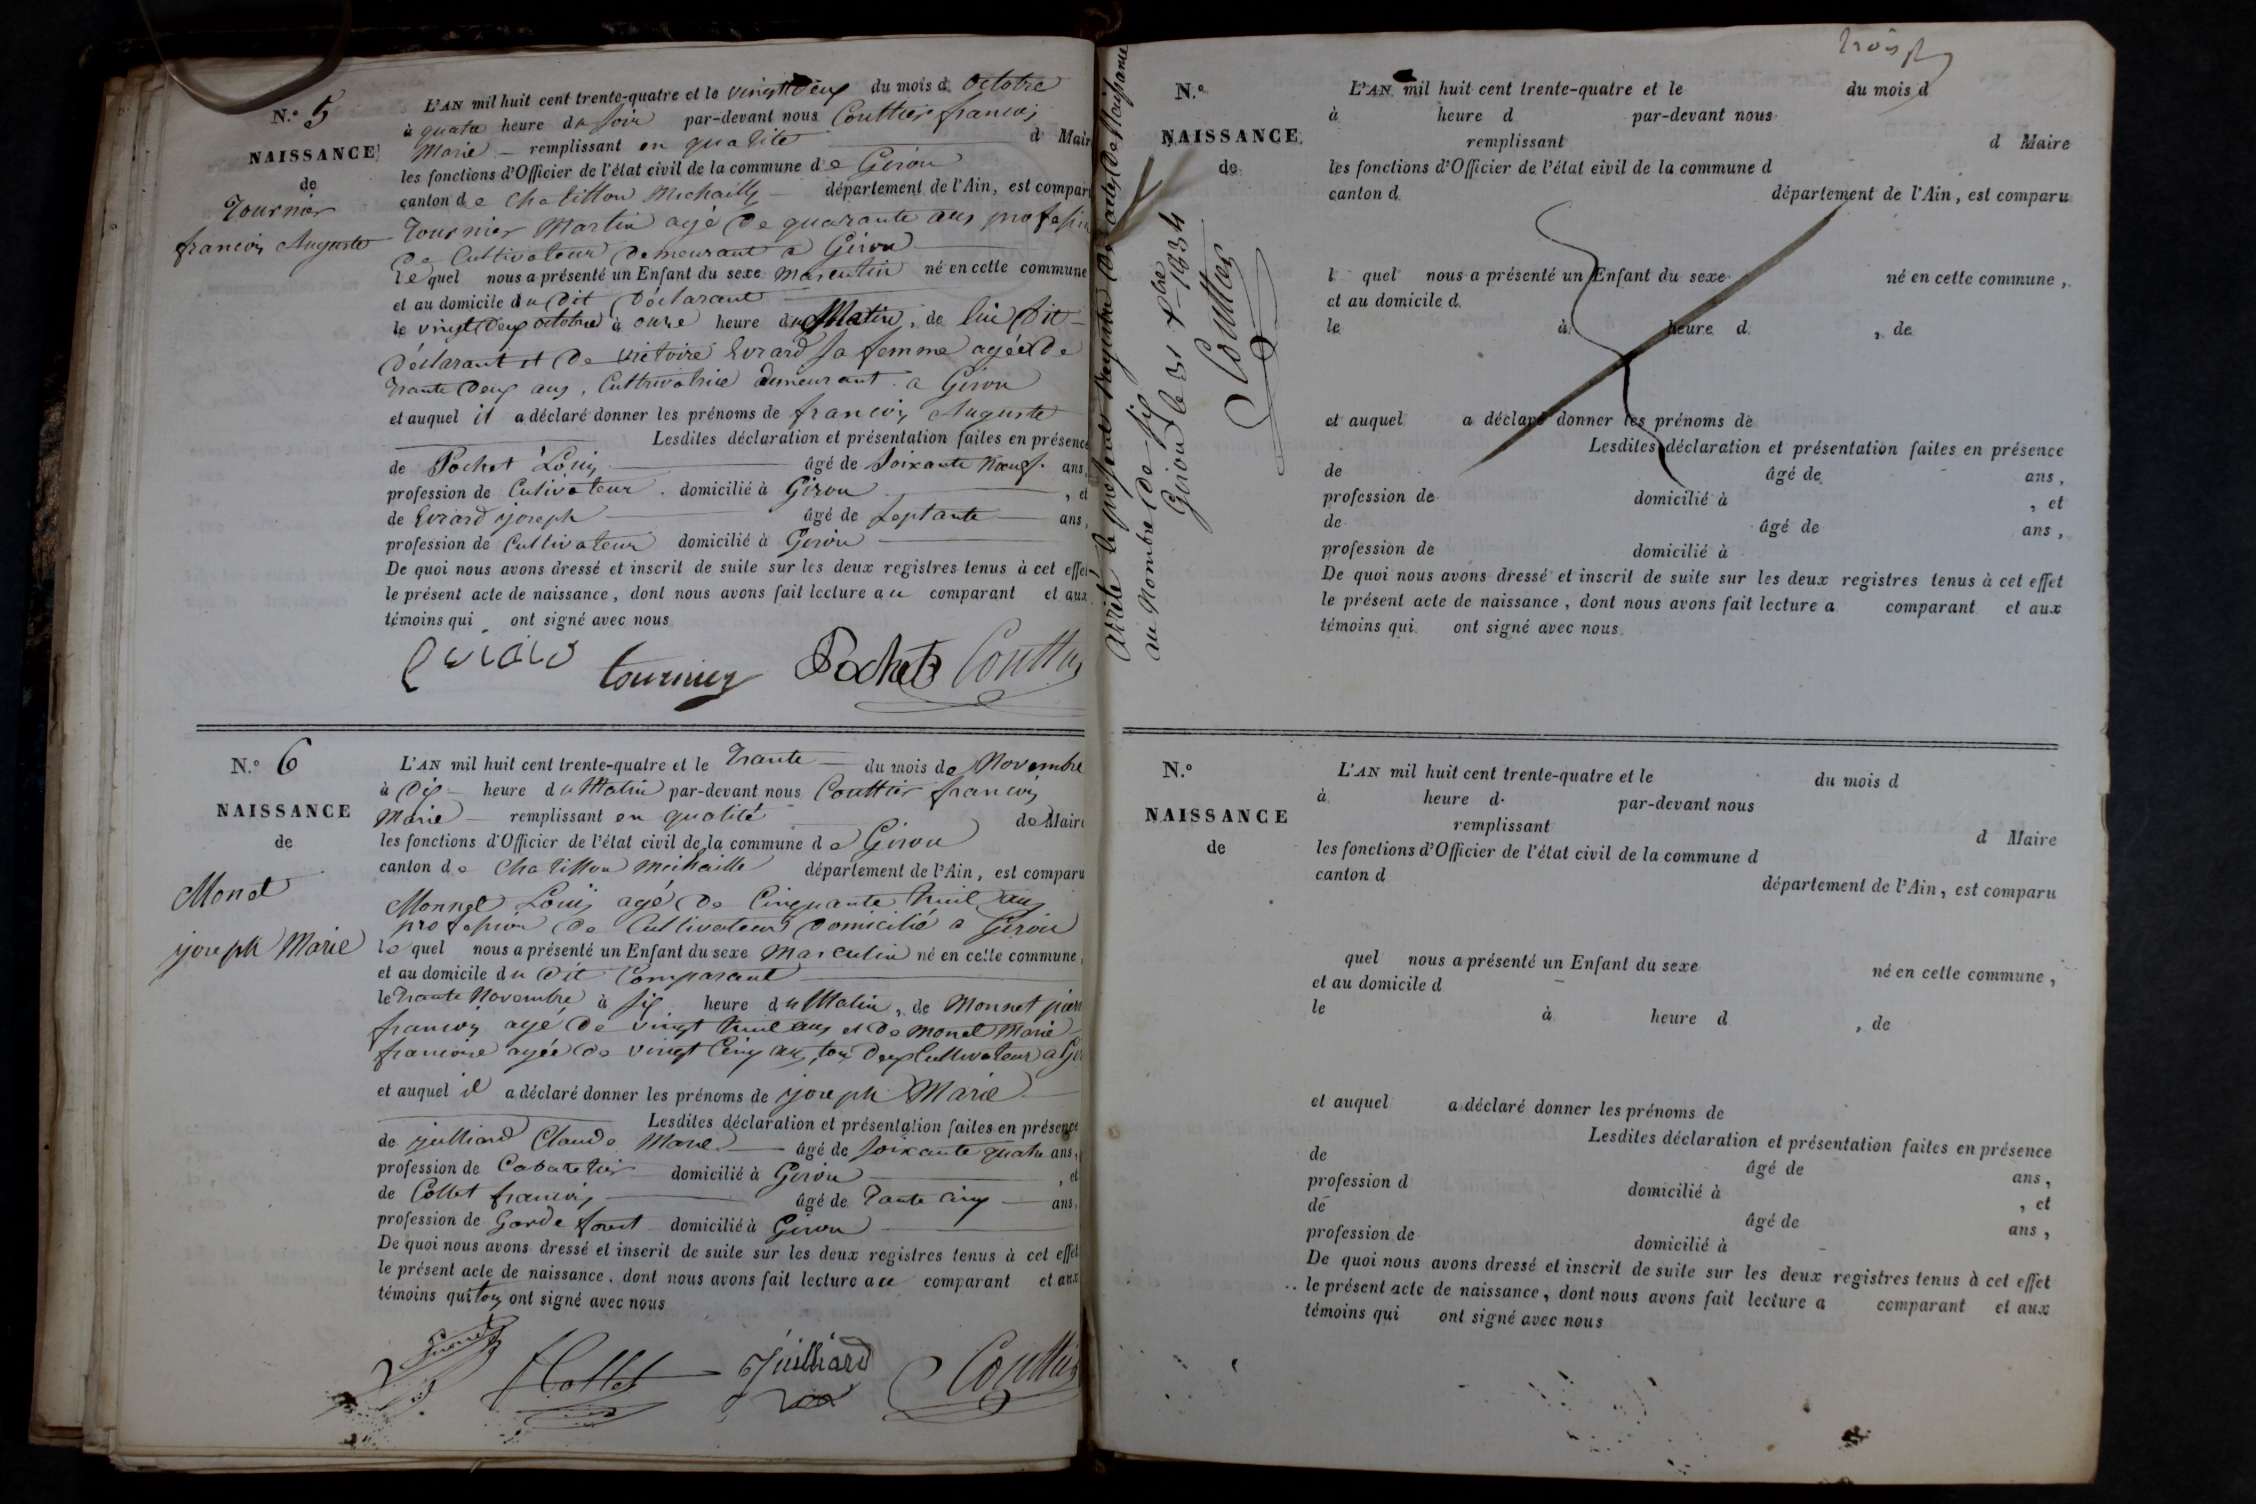 N.o 5
NAISSANCE
de
Tournier
francois Auguste
L'AN mil huit cent trente-quatre et le vingt deux du mois d octobre
à quatre heure du soir par-devant nous Couttier francois
Marie remplissant en qualité d Mair
les fonctions d'Officier de l'état civil de la commune de Giron
canton de Chatillon Michaille département de l'Ain, est compar
Tournier Martin agé de quarante ans profession
de Cultivateur demeurant a Giron
le quel nous a présenté un Enfant du sexe masculin né en cette commune
et au domicile du dit Déclarant
le vingt deux octobre à onze heure du Matin, de lui dit
Déclarant et de victoire Evrard sa femme agée de
trante deux ans, Cultivatrice demeurant a Giron
et auquel il a déclaré donner les prénoms de francois Auguste
Lesdites déclaration et présentation faites en présence
de Pochet Louis âgé de soixante neuf ans,
profession de Cutivateur domicilié à Giron , et
de Evrard joseph âgé de septante ans,
profession de Cultivateur domicilié à Giron
De quoi nous avons dressé et inscrit de suite sur les deux registres tenus à cet effet
le présent acte de naissance, dont nous avons fait lecture au comparant et aux
témoins qui ont signé avec nous
tournier Pochet Couttier
N.o 6
NAISSANCE
de
Monet
joseph Marie
L'AN mil huit cent trente-quatre et le trante du mois de Novembre
à dix heure du Matin par-devant nous Couttier francois
Marie remplissant en qualité de Maire
les fonctions d'Officier de l'état civil de la commune de Giron
canton de Chatillon Michaille département de l'Ain, est comparu
Monnet Louis agé de Cinquante huit ans
profession de Cultivateur domicilié a Giron
le quel nous a présenté un Enfant du sexe Masculin né en cette commune,
et au domicile du dit Comparant
le trante Novembre à six heure du Matin, de Monnet pierre
francois agé de vingt huit ans et de monet Marie
francoise agée de vingt Cinq ans tous deux Cultivateur a Gir
et auquel il a déclaré donner les prénoms de joseph Marie
Lesdites déclaration et présentation faites en présence
de julliard Claude Marie âgé de soixante quatre ans,
profession de Cabaretier domicilié à Giron , et
de Collet francois âgé de trante cinq ans,
profession de Garde foret domicilié à Giron
De quoi nous avons dressé et inscrit de suite sur les deux registres tenus à cet effet
le présent acte de naissance, dont nous avons fait lecture au comparant et aux
témoins qui tous ont signé avec nous
Collet Juilliard Couttier
Arrêté le présent Registre des actes de Naissance
au Nombre de six
Giron le 31 xbre 1834
Couttier
N.o
NAISSANCE
de
L'AN mil huit cent trente-quatre et le du mois d
à heure d par-devant nous
remplissant d Maire
les fonctions d'Officier de l'état civil de la commune d
canton d département de l'Ain, est comparu
l quel nous a présenté un Enfant du sexe né en cette commune,
et au domicile d
le à heure d , de
et auquel a déclaré donner les prénoms de
Lesdites déclaration et présentation faites en présence
de âgé de ans,
profession de domicilié à , et
de âgé de ans,
profession de domicilié à
De quoi nous avons dressé et inscrit de suite sur les deux registres tenus à cet effet
le présent acte de naissance, dont nous avons fait lecture a comparant et aux
témoins qui ont signé avec nous
N.o
NAISSANCE
de
L'AN mil huit cent trente-quatre et le du mois d
à heure d par-devant nous
remplissant d Maire
les fonctions d'Officier de l'état civil de la commune d
canton d département de l'Ain, est comparu
quel nous a présenté un Enfant du sexe né en cette commune,
et au domicile d
le à heure d , de
et auquel a déclaré donner les prénoms de
Lesdites déclaration et présentation faites en présence
de âgé de ans,
profession d domicilié à , et
de âgé de ans,
profession de domicilié à
De quoi nous avons dressé et inscrit de suite sur les deux registres tenus à cet effet
le présent acte de naissance, dont nous avons fait lecture a comparant et aux
témoins qui ont signé avec nous